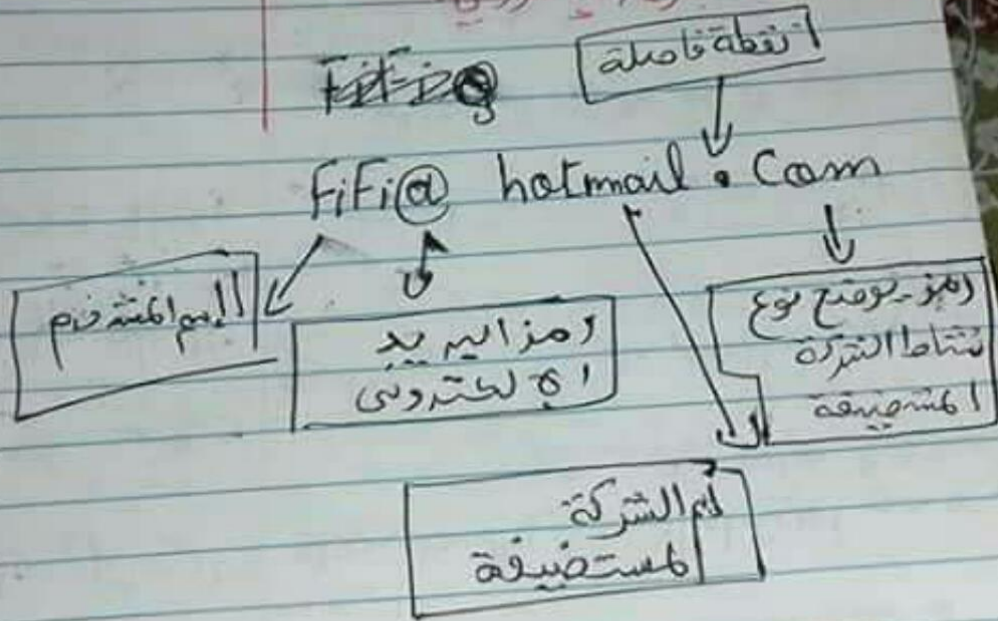 نقطة فاصلة
FiFi@ hotmail . Com
إسم المستخدم
رمز البريد
الإلكتروني
رمز يوضح نوع
نشاط الشركة
المستضيفة
إسم الشركة
المستضيفة